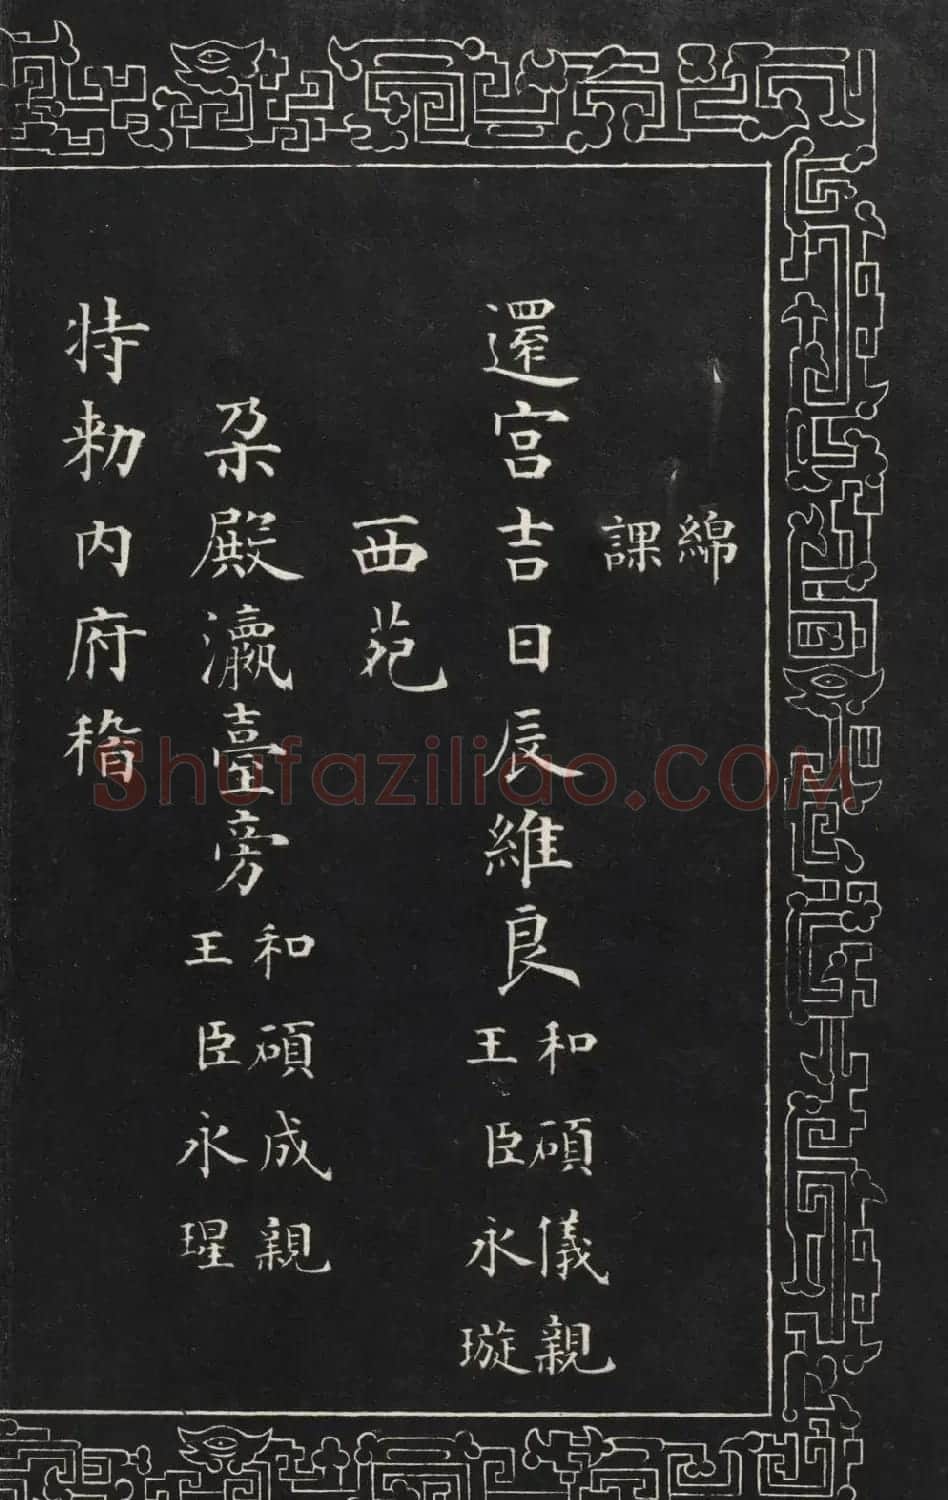 綿
課
還宮吉日辰維良
和碩儀親
王臣永璇
西苑
朶殿瀛臺旁
和碩成親
王臣永瑆
特勅內府稽
Shufaziliao.COM